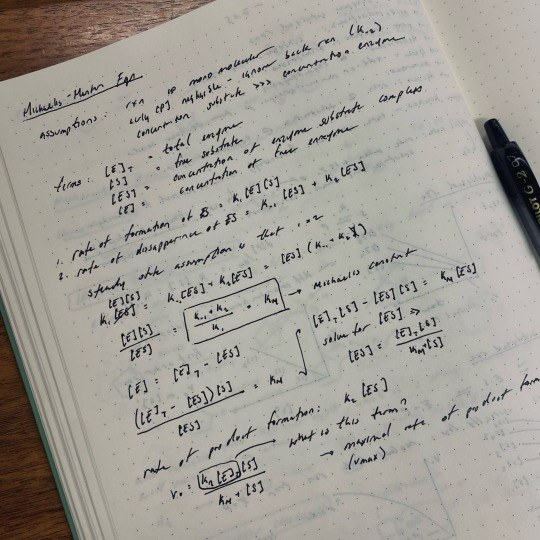 Michaelis-Menten Eqn
assumptions: rxn is mono molecular
early [P] negligible - ignore back rxn (k-2)
concentration substrate >>> concentration enzyme
terms: [E]T = total enzyme
[S] = free substrate
[ES] = concentration of enzyme substrate complex
[E] = concentration of free enzyme
1. rate of formation of ES = k1[E][S]
2. rate of disappearance of ES = k-1[ES] + k2[ES]
steady state assumption is that 1 = 2
[E][S]
k1 = k-1[ES] + k2[ES] = [ES](k-1 + k2)
[E][S]/[ES] = (k-1 + k2)/k1 = KM → Michaelis constant
[E] = [E]T - [ES]
([E]T - [ES])[S]/[ES] = KM
[E]T[S] - [ES][S] = KM[ES]
solve for [ES] ⇒
[ES] = [E]T[S]/KM+[S]
rate of product formation: k2[ES]
v0 = k2[E]T[S]/KM + [S]
what is this term?
→ maximal rate of product form
(vmax)
PILOT G-2